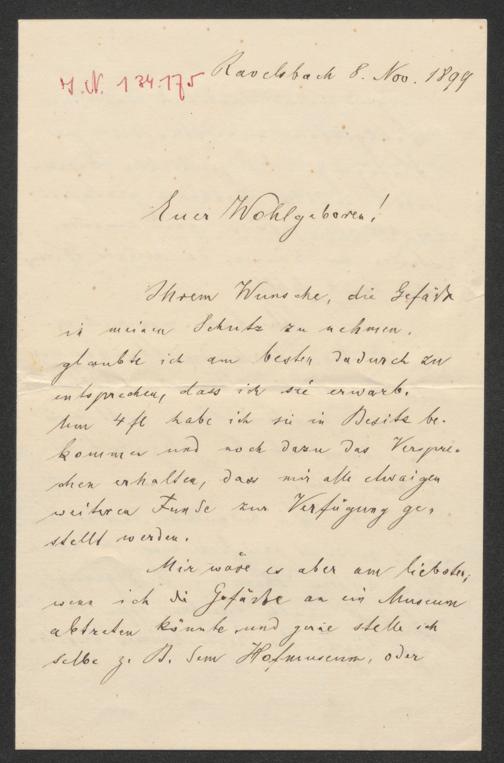 J. N. 134.175
Ravelsbach 8. Nov. 1899
Euer Wohlgeboren!
Ihrem Wunsche, die Gefäße
in meinen Schutz zu nehmen,
glaubte ich am besten dadurch zu
entsprechen, dass ich sie erwarb.
Um 4 fl habe ich sie in Besitz be-
kommen und noch dazu das Verspre-
chen erhalten, dass mir alle etwaigen
weiteren Funde zur Verfügung ge-
stellt werden.
Mir wäre es aber am liebsten,
wenn ich die Gefäße an ein Museum
abtreten könnte und gerne stelle ich
selbe z. B. dem Hofmuseum, oder